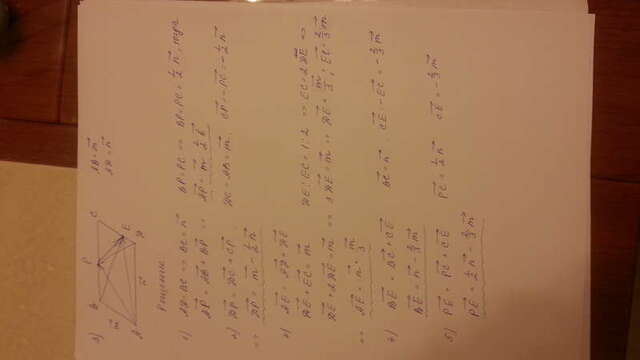 3) B P C AB⃗ = m⃗
m⃗ AD⃗ = n⃗
E
A n⃗ D
Решение
1) AD = BC => BC⃗ = n⃗ BP = PC => BP⃗ = PC⃗ = 1/2 n⃗,
AP⃗ = AB⃗ + BP⃗ => AP⃗ = m⃗ 1/2
2) DP⃗ = DC⃗ + CP⃗, DC⃗ = AB⃗ = m⃗, CP⃗ = -PC⃗ = -1/2 n⃗
=> DP⃗ = m⃗ - 1/2 n⃗
3) AE⃗ = AD⃗ + DE⃗
DE⃗ + EC⃗ = m⃗ DE : EC = 1 : 2 => EC⃗ = 2DE⃗ =>
DE⃗ + 2DE⃗ = m⃗ => 3DE⃗ = m⃗ => DE⃗ = m⃗/3; EC⃗ = 2/3 m⃗
=> AE⃗ = n⃗ + m⃗/3
4) BE⃗ = BC⃗ + CE⃗ BC⃗ = n⃗, CE⃗ = -EC⃗ = -2/3 m⃗
BE⃗ = n⃗ - 2/3 m⃗
5) PE⃗ = PC⃗ + CE⃗ PC⃗ = 1/2 n⃗ CE⃗ = -2/3 m⃗
PE⃗ = 1/2 n⃗ - 2/3 m⃗